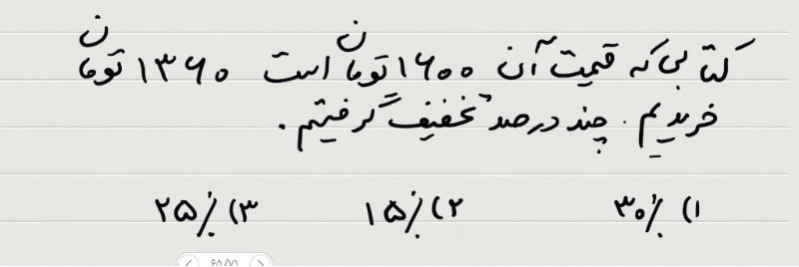 کتابی که قیمت آن ۱۶۰۰ تومان است ۱۳۶۰ تومان
خریدیم. چند درصد تخفیف گرفتیم.
۱) ٪۳۰ ۲) ٪۱۵ ۳) ٪۲۵
۴۵/۷۱